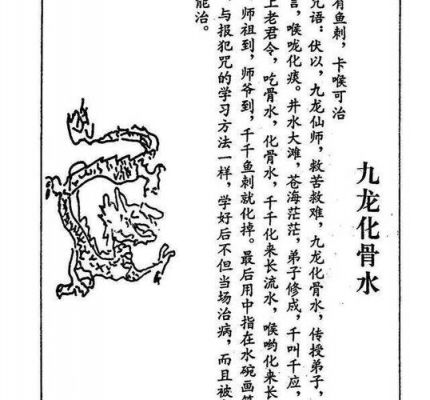 九龙化骨水
有鱼刺，卡喉可治
咒语：伏以，九龙仙师，救苦救难，九龙化骨水，传授弟子，
言，喉咙化痰。井水大滩，苍海茫茫，弟子修成，千叫千应，
上老君令，吃骨水，化骨水，千千化来长流水，喉哟化来长
师祖到，师爷到，千千鱼刺就化掉。最后用中指在水碗画
，与报犯咒的学习方法一样，学好后不但当场治病，而且被
能治。